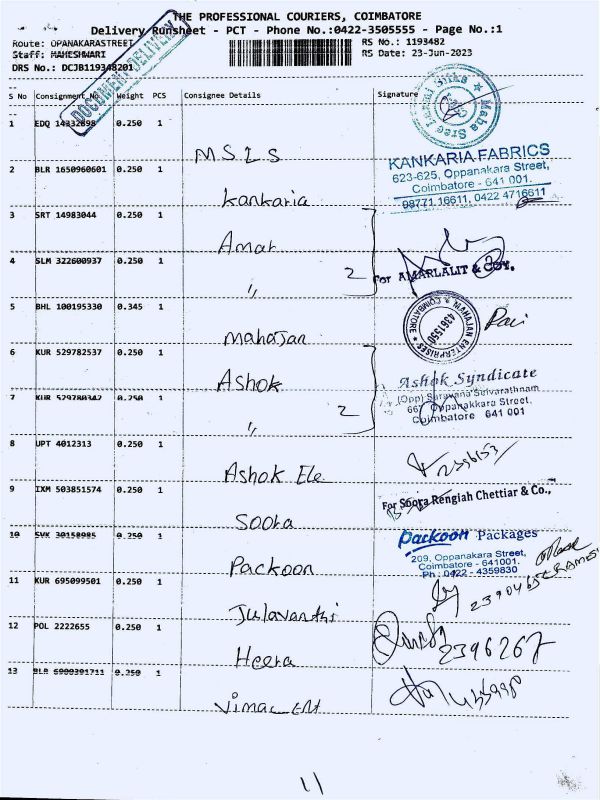 THE PROFESSIONAL COURIERS, COIMBATORE
Delivery Runsheet - PCT - Phone No.:0422-3505555 - Page No.:1
Route: OPANAKARASTREET
Staff: MAHESHWARI
DRS No.: DCJB119348201
RS No.: 1193482
RS Date: 23-Jun-2023
DOCUMENT DELIVERY
S No Consignment No. Weight PCS Consignee Details Signature
1 EDQ 14332898 0.250 1
MSLS
Maha Sree Laxmi Silks
2 BLR 1650960601 0.250 1
Kankaria
KANKARIA FABRICS
623-625, Oppanakara Street,
Coimbatore - 641 001.
98771 16611, 0422 4716611
3 SRT 14983044 0.250 1
Amar
4 SLM 322600937 0.250 1
"
2
For AMARLALIT & COY.
5 BHL 100195330 0.345 1
mahajan
MAHAJAN ENTERPRISES
COIMBATORE
4361550
6 KUR 529782537 0.250 1
Ashok
Ashok Syndicate
(Opp) Saravana Selvarathnam
667 Oppanakkara Street,
Coimbatore 641 001
7 KUR 529780342 0.250 1
"
2
8 UPT 4012313 0.250 1
Ashok Ele
9 IXM 503851574 0.250 1
Soora
For Soora Rengiah Chettiar & Co.,
10 SVK 30158985 0.250 1
Packoon
Packoon Packages
209, Oppanakara Street,
Coimbatore - 641001.
Ph : 0422 - 4359830
11 KUR 695099501 0.250 1
Julavanthi
12 POL 2222655 0.250 1
Heera
2396267
13 BLR 6900391711 0.250 1
11